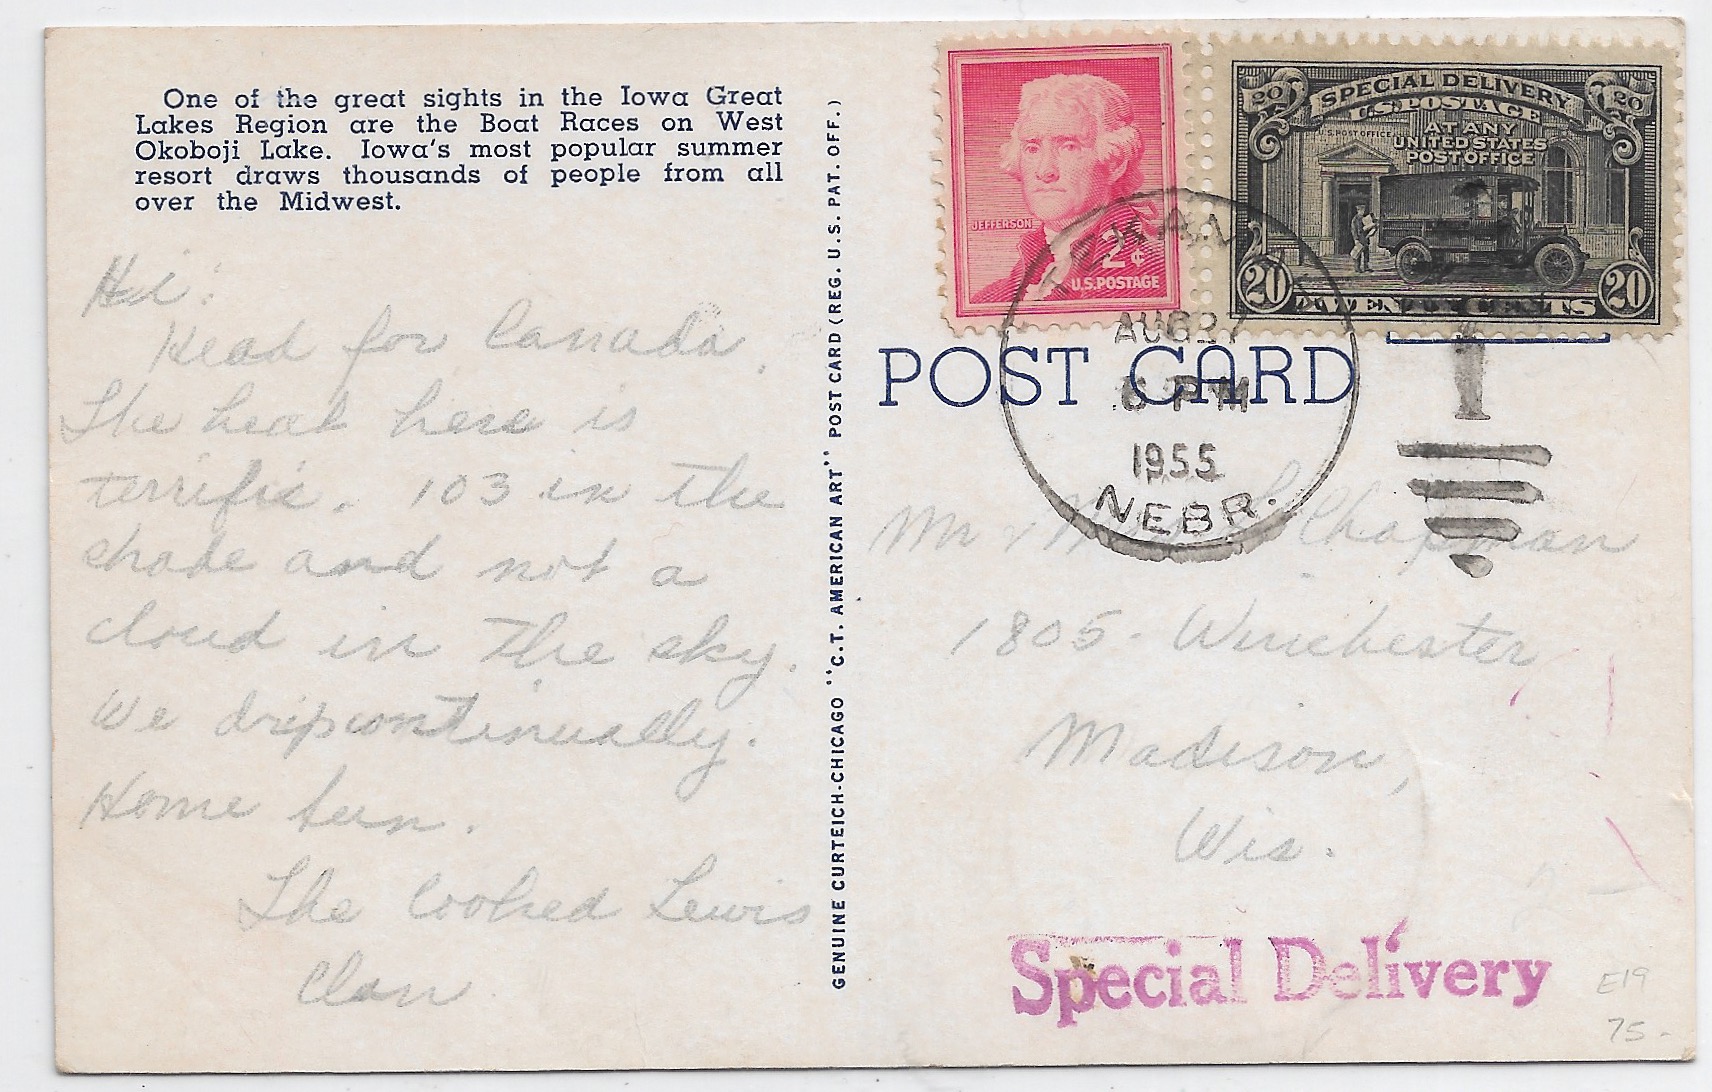 One of the great sights in the Iowa Great
Lakes Region are the Boat Races on West
Okoboji Lake. Iowa's most popular summer
resort draws thousands of people from all
over the Midwest.
Hi!
Head for Canada.
The heat here is
terrific. 103 in the
shade and not a
cloud in the sky.
We drip continually.
Home Sun.
The Cooked Lewis
Clan.
GENUINE CURTEICH-CHICAGO "C.T. AMERICAN ART" POST CARD (REG. U.S. PAT. OFF.)
JEFFERSON
2¢
U.S. POSTAGE
20 SPECIAL DELIVERY 20
U.S. POSTAGE
U.S. POST OFFICE
AT ANY
UNITED STATES
POST OFFICE
20 TWENTY CENTS 20
AUG 27
6 PM
1955
NEBR.
POST CARD
Mr & Chapman
1805 - Winchester
Madison,
Wis.
Special Delivery
E19
75-